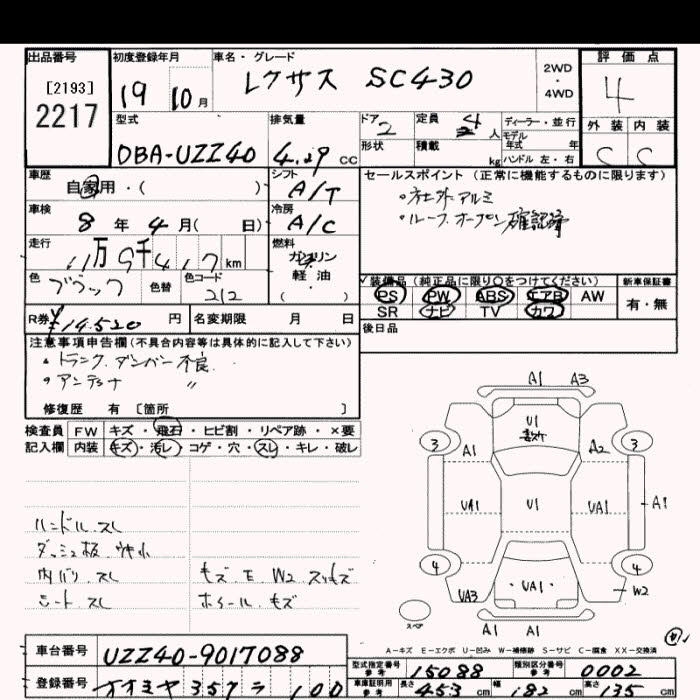 出品番号
[2193]
2217
初度登録年月
19 10月
車名・グレード
レクサス SC430
2WD
・
4WD
評価点
4
型式
DBA-UZZ40
排気量
4.29 CC
ドア
2
定員
4 人
ディーラー・並行
モデル
年式 年
形状
積載
kg
ハンドル 左・右
外装 内装
C C
車歴
自家用・( )
シフト
A/T
車検
8 年 4 月( 日)
冷房
A/C
走行
11万9千417km
燃料
ガソリン
軽油
色
ブラック
色替
色コード
212
R券 ¥14.520 円
名変期限 月 日
セールスポイント (正常に機能するものに限ります)
・社外アルミ
・ルーフ オープン確認済
装備品 (純正品に限り○をつけてください)
新車保証書
PS PW ABS エアB AW
有・無
SR ナビ TV カワ
後日品
注意事項申告欄(不具合内容等は具体的に記入して下さい)
・トランク ダンパー不良
・アンテナ 〃
修復歴 有 〔箇所 〕
検査員
記入欄
FW キズ・飛石・ヒビ割・リペア跡・×要
内装 キズ・汚レ・コゲ・穴・スレ・キレ・破レ
ハンドル スレ
ダッシュ板 ウキ小
内バリ スレ
シート スレ
キズ E W2 スリキズ
ホイール キズ
A1 A3
U1
3 3
A1 A2
UA1 U1 UA1 A1
4 4
UA1
UA3 W2
スペア
A1 A1
A-キズ E-エクボ U-凹み W-補修跡 S-サビ C-腐食 XX-交換済
車台番号 UZZ40-9017088
型式指定番号
参考
15088
類別区分番号
参考
0002
登録番号 オオミヤ 357 ラ 100
車庫証明用
参考
長さ 453 cm 幅 182 cm 高さ 135 cm